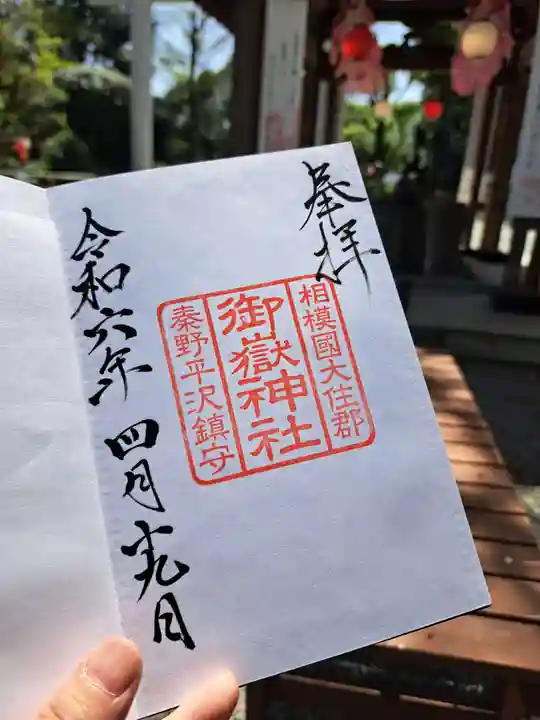 奉拝
相模國大住郡
御嶽神社
秦野平沢鎮守
令和六年 四月廿九日